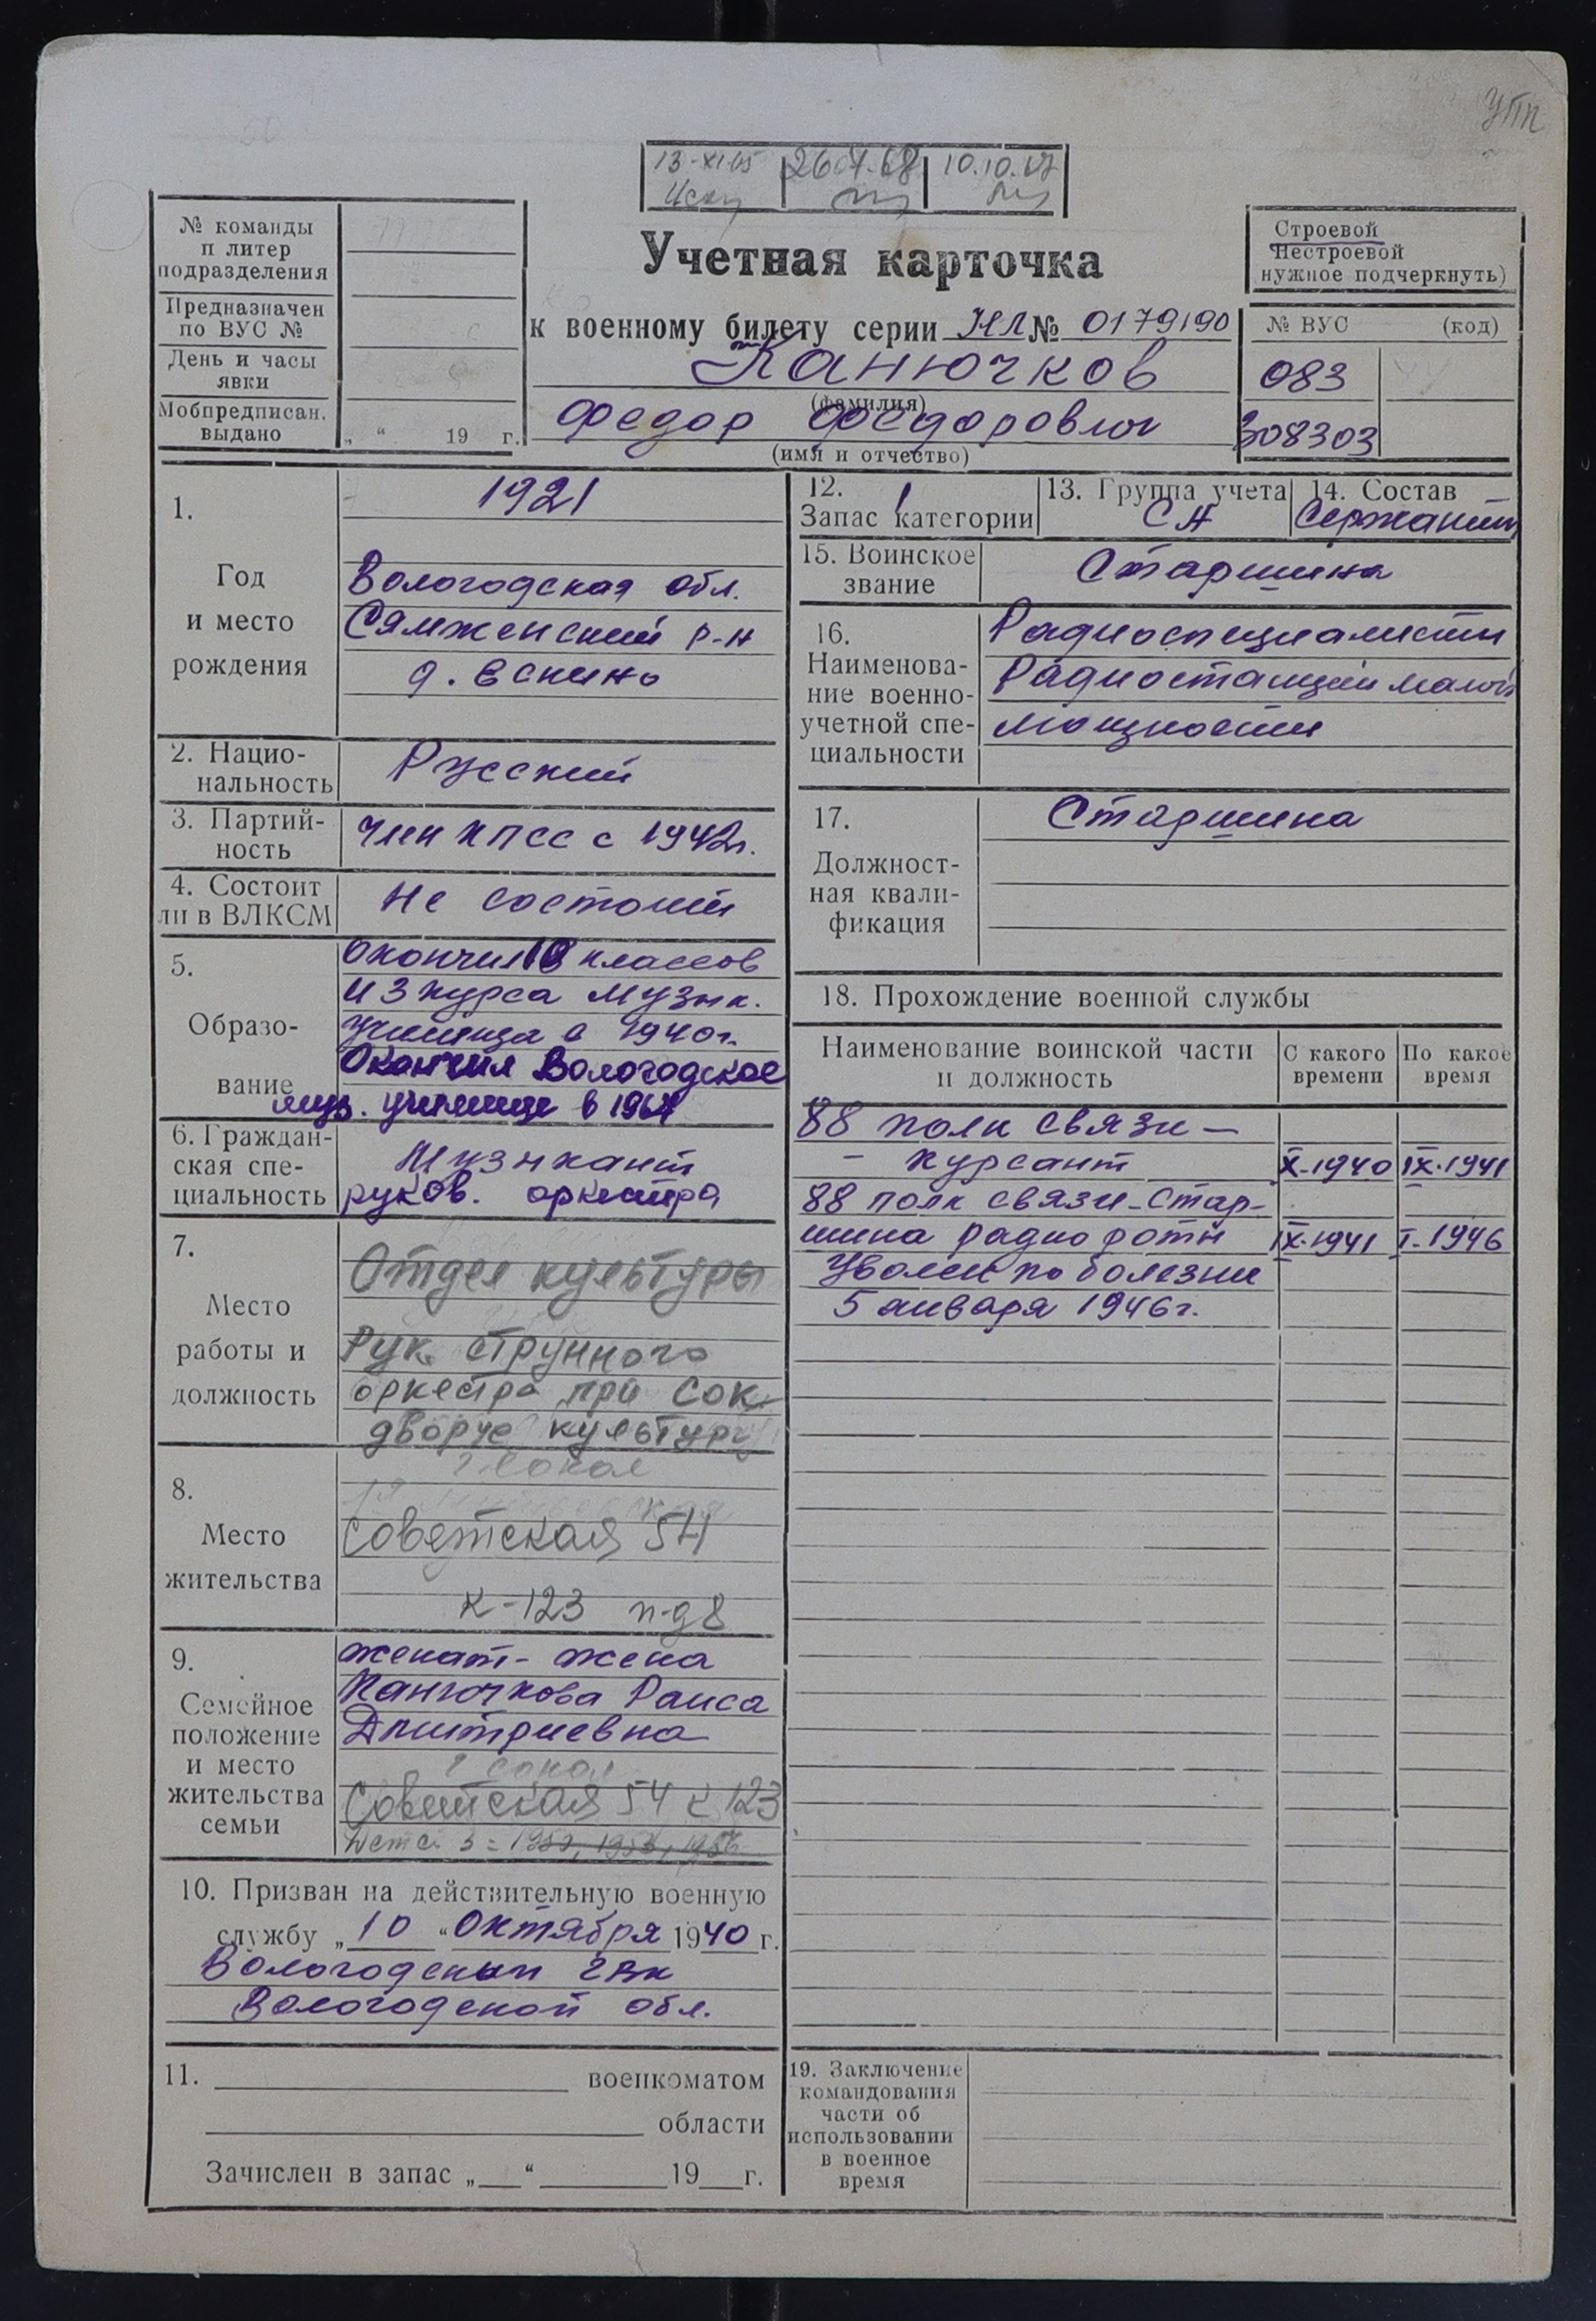 УПК
13-XI-65 26.07.68 10.10.67
№ команды
п литер
подразделения
Предназначен
по ВУС №
День и часы
явки
Мобпредписан.
выдано
„ “ 19 г.
Учетная карточка
к военному билету серии НЛ № 0179190
Канючков
(фамилия)
Федор Федорович
(имя и отчество)
Строевой
Нестроевой
нужное подчеркнуть)
№ ВУС (код)
083
308303
1.
Год
и место
рождения
1921
Вологодская обл.
Сямженский р-н
д. Ескино
2. Нацио-
нальность
Русский
3. Партий-
ность
Член КПСС с 1942г.
4. Состоит
ли в ВЛКСМ
Не состоит
5.
Образо-
вание
Окончил 10 классов
и 3 курса музык.
училища в 1940г.
Окончил Вологодское
муз. училище в 1964
6. Граждан-
ская спе-
циальность
Музыкант
руков. оркестра
7.
Место
работы и
должность
Отдел культуры
Рук. струнного
оркестра при Сок.
дворце культуры
8.
Место
жительства
г. Сокол
Советская 54
к-123 п-д 8
9.
Семейное
положение
и место
жительства
семьи
женат - жена
Канючкова Раиса
Дмитриевна
г Сокол
Советская 54 к 123
Дети 3 =
10. Призван на действительную военную
службу „10“ Октября 1940 г.
Вологодским ГВК
Вологодской обл.
11. военкоматом
области
Зачислен в запас „ “ 19 г.
12. 1
Запас категории
13. Группа учета
СА
14. Состав
Сержанты
15. Воинское
звание
Старшина
16.
Наименова-
ние военно-
учетной спе-
циальности
Радиоспециалисты
Радиостанций малой
мощности
17.
Должност-
ная квали-
фикация
Старшина
18. Прохождение военной службы
Наименование воинской части
и должность
С какого
времени
По какое
время
88 полк связи —
- курсант X-1940 IX-1941
88 полк связи - Стар-
шина радио роты IX-1941 I-1946
Уволен по болезни
5 января 1946г.
19. Заключение
командования
части об
использовании
в военное
время